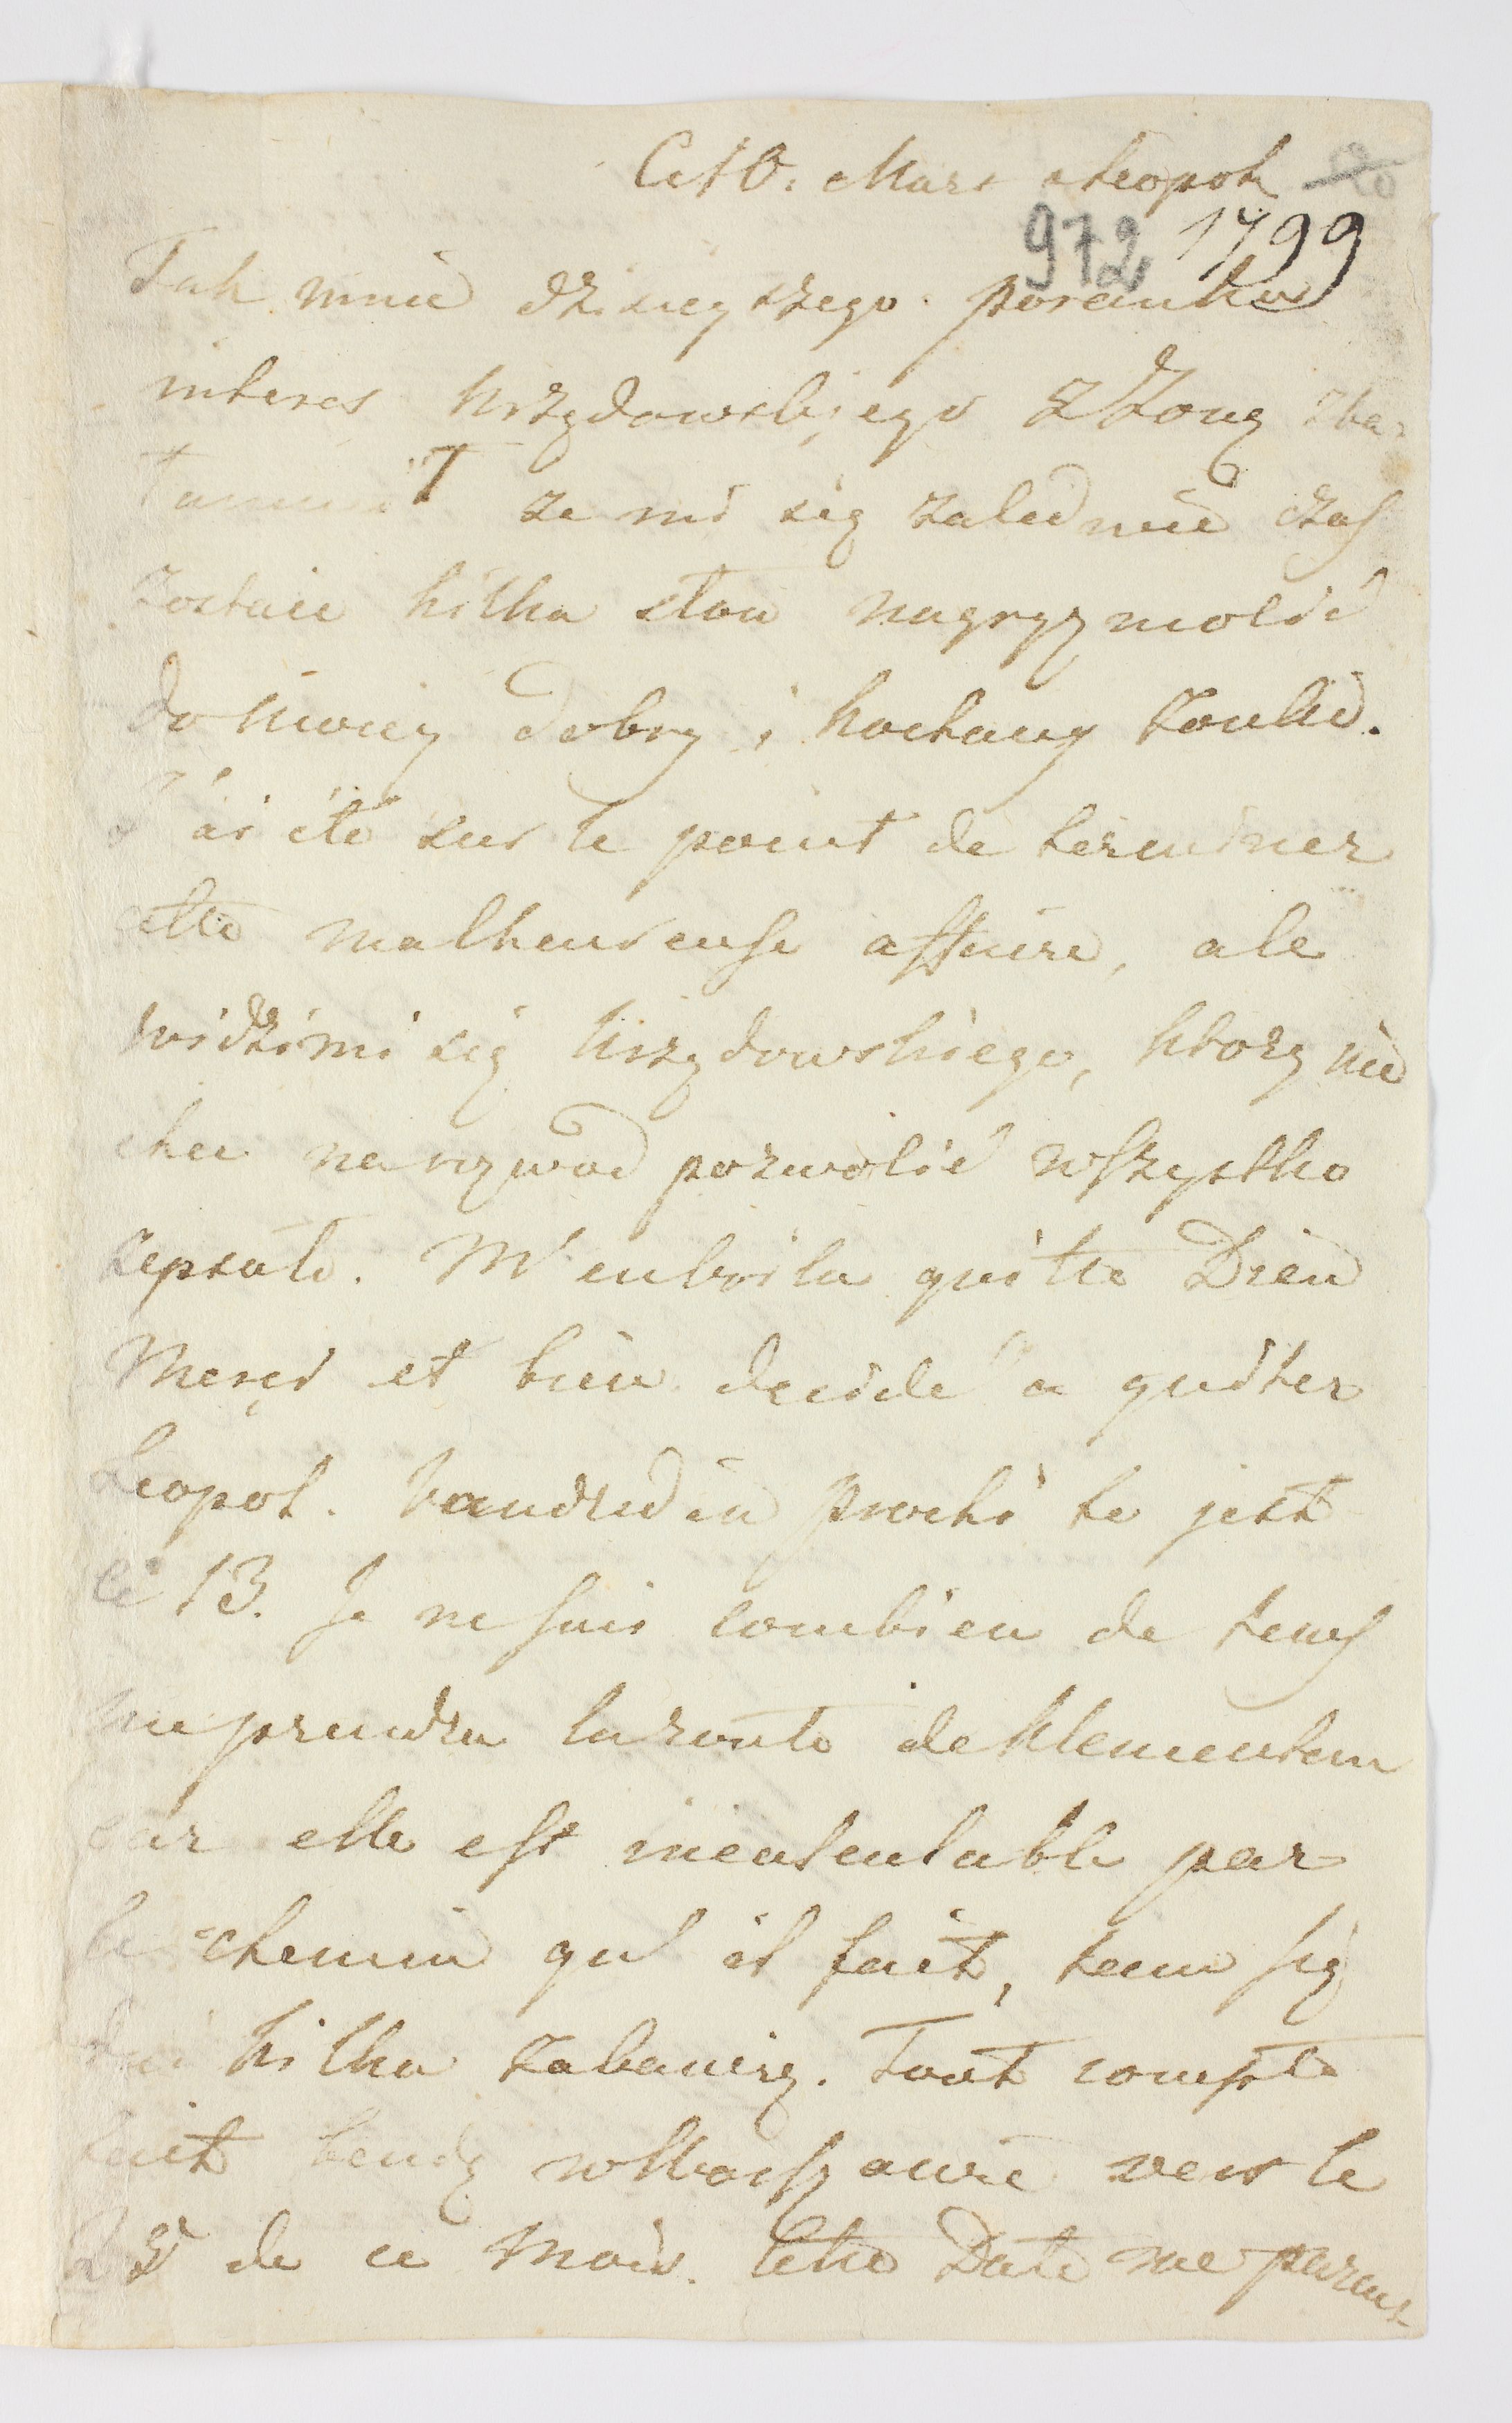 Ce 10. Mars a Leopol 20
972 1799
Tak mnie dzisieyszego poranku
interes Krzędowskiego z Żoną zba-
łamucił ze mi się zaledwie czas
zostaie kilka słow nagryzmolić
do moiey dobry i kochany Zonlie.
J'ai été sur le point de terminer
cette malheureuse affaire, ale
widzimi się Krzędowskiego, ktory nie
chce na rozwod pozwolić wszystko
zepsuło. M'en voila quitte Dieu
Merçi et bien decidé a quitter
Leopol. Vandredin prochi to jest
le 13. Je ne sais combien de tems
me prendra la route de Klementow
car elle est inententable par
le chemin qu'il fait, tam się
dni kilka zabawię. Tout compte
fait bendę w Warszawie vers le
25 de ce Mois. Cette Date me parait